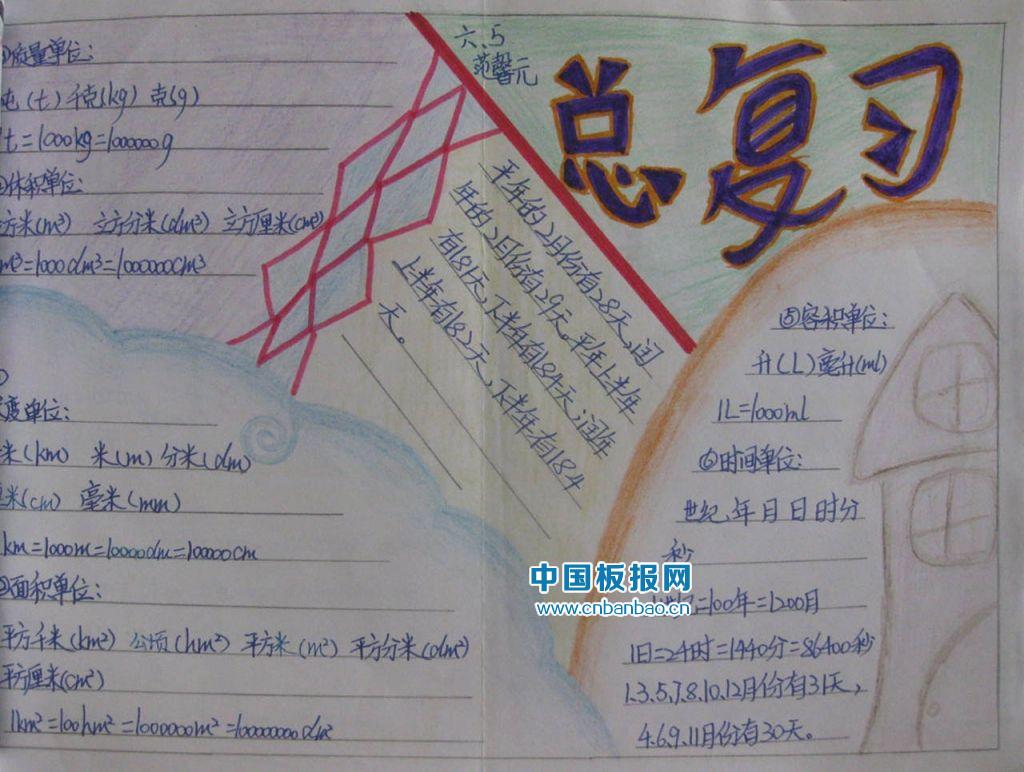 总复习
六、5
范馨元
质量单位:
吨(t) 千克(kg) 克(g)
t=1000kg=1000000g
体积单位:
方米(m³) 立方分米(dm³) 立方厘米(cm³)
m³=1000dm³=1000000cm³
度单位:
米(km) 米(m) 分米(dm)
米(cm) 毫米(mm)
km=1000m=10000dm=100000cm
面积单位:
平方千米(km²) 公顷(hm²) 平方米(m²) 平方分米(dm²)
平方厘米(cm²)
1km²=100hm²=1000000m²=100000000dm²
平年的2月份有28天,闰
年的2月份有29天。平年上半年
有181天,下半年有184天;闰年
上半年有182天,下半年有184
天。
⑤容积单位:
升(L) 毫升(ml)
1L=1000ml
⑥时间单位:
世纪、年 月 日 时 分
秒
=100年=1200月
1日=24时=1440分=86400秒
1.3.5.7.8.10.12月份有31天,
4.6.9.11月份有30天。
中国板报网
www.cnbanbao.cn